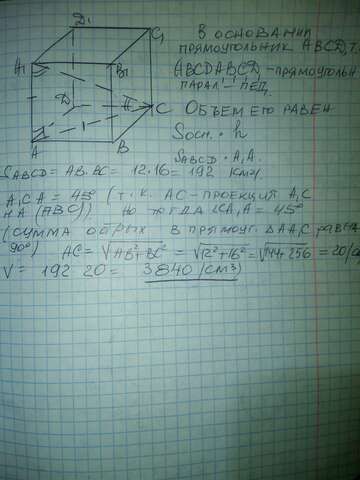 D₁
C₁
A₁
B₁
D
C
A
B
В ОСНОВАНИИ
ПРЯМОУГОЛЬНИК ABCD, Т.
ABCDABCD₁ - ПРЯМОУГОЛЬН
ПАРАЛ
ОБЪЕМ ЕГО РАВЕН
Sосн. · h
SABCD · A₁A.
SABCD = AB·BC = 12·16 = 192
A₁CA = 45° (Т.К. AC - ПРОЕКЦИЯ A₁C
НА (ABC)), НО ТОГДА ∠CA₁A = 45°
(СУММА ОСТРЫХ В ПРЯМОУГ. ΔAA₁C РАВНА
90°) AC = √AB²+BC² = √12²+16² = √144+256 = 20
V = 192·20 = 3840 (СМ³)